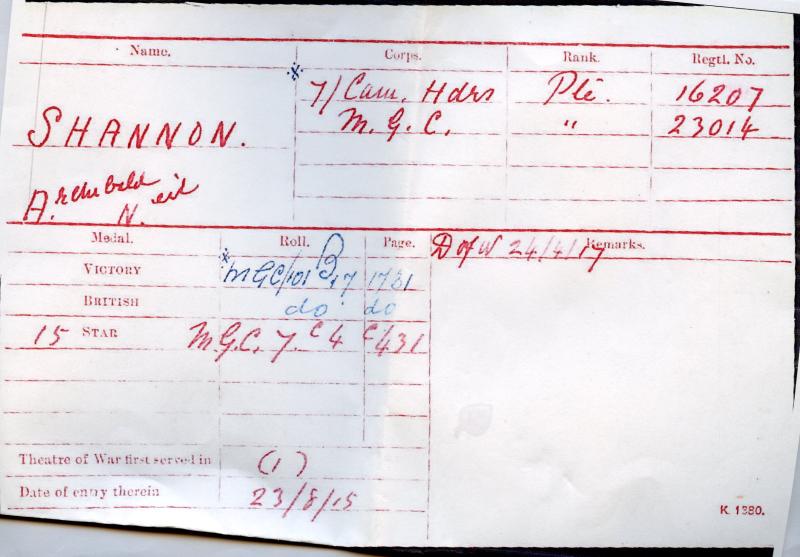 Name. Corps. Rank. Regtl. No.
7/Cam. Hdrs Pte. 16207
SHANNON. M.G.C. " 23014
Archibald Neil
Medal. Roll. Page. Remarks.
D of W 24/4/17
VICTORY MGC/101 B17 1731
BRITISH do do
15 STAR M.G.C. 7. C4 C/431
Theatre of War first served in (1)
Date of entry therein 23/8/15
K. 1380.